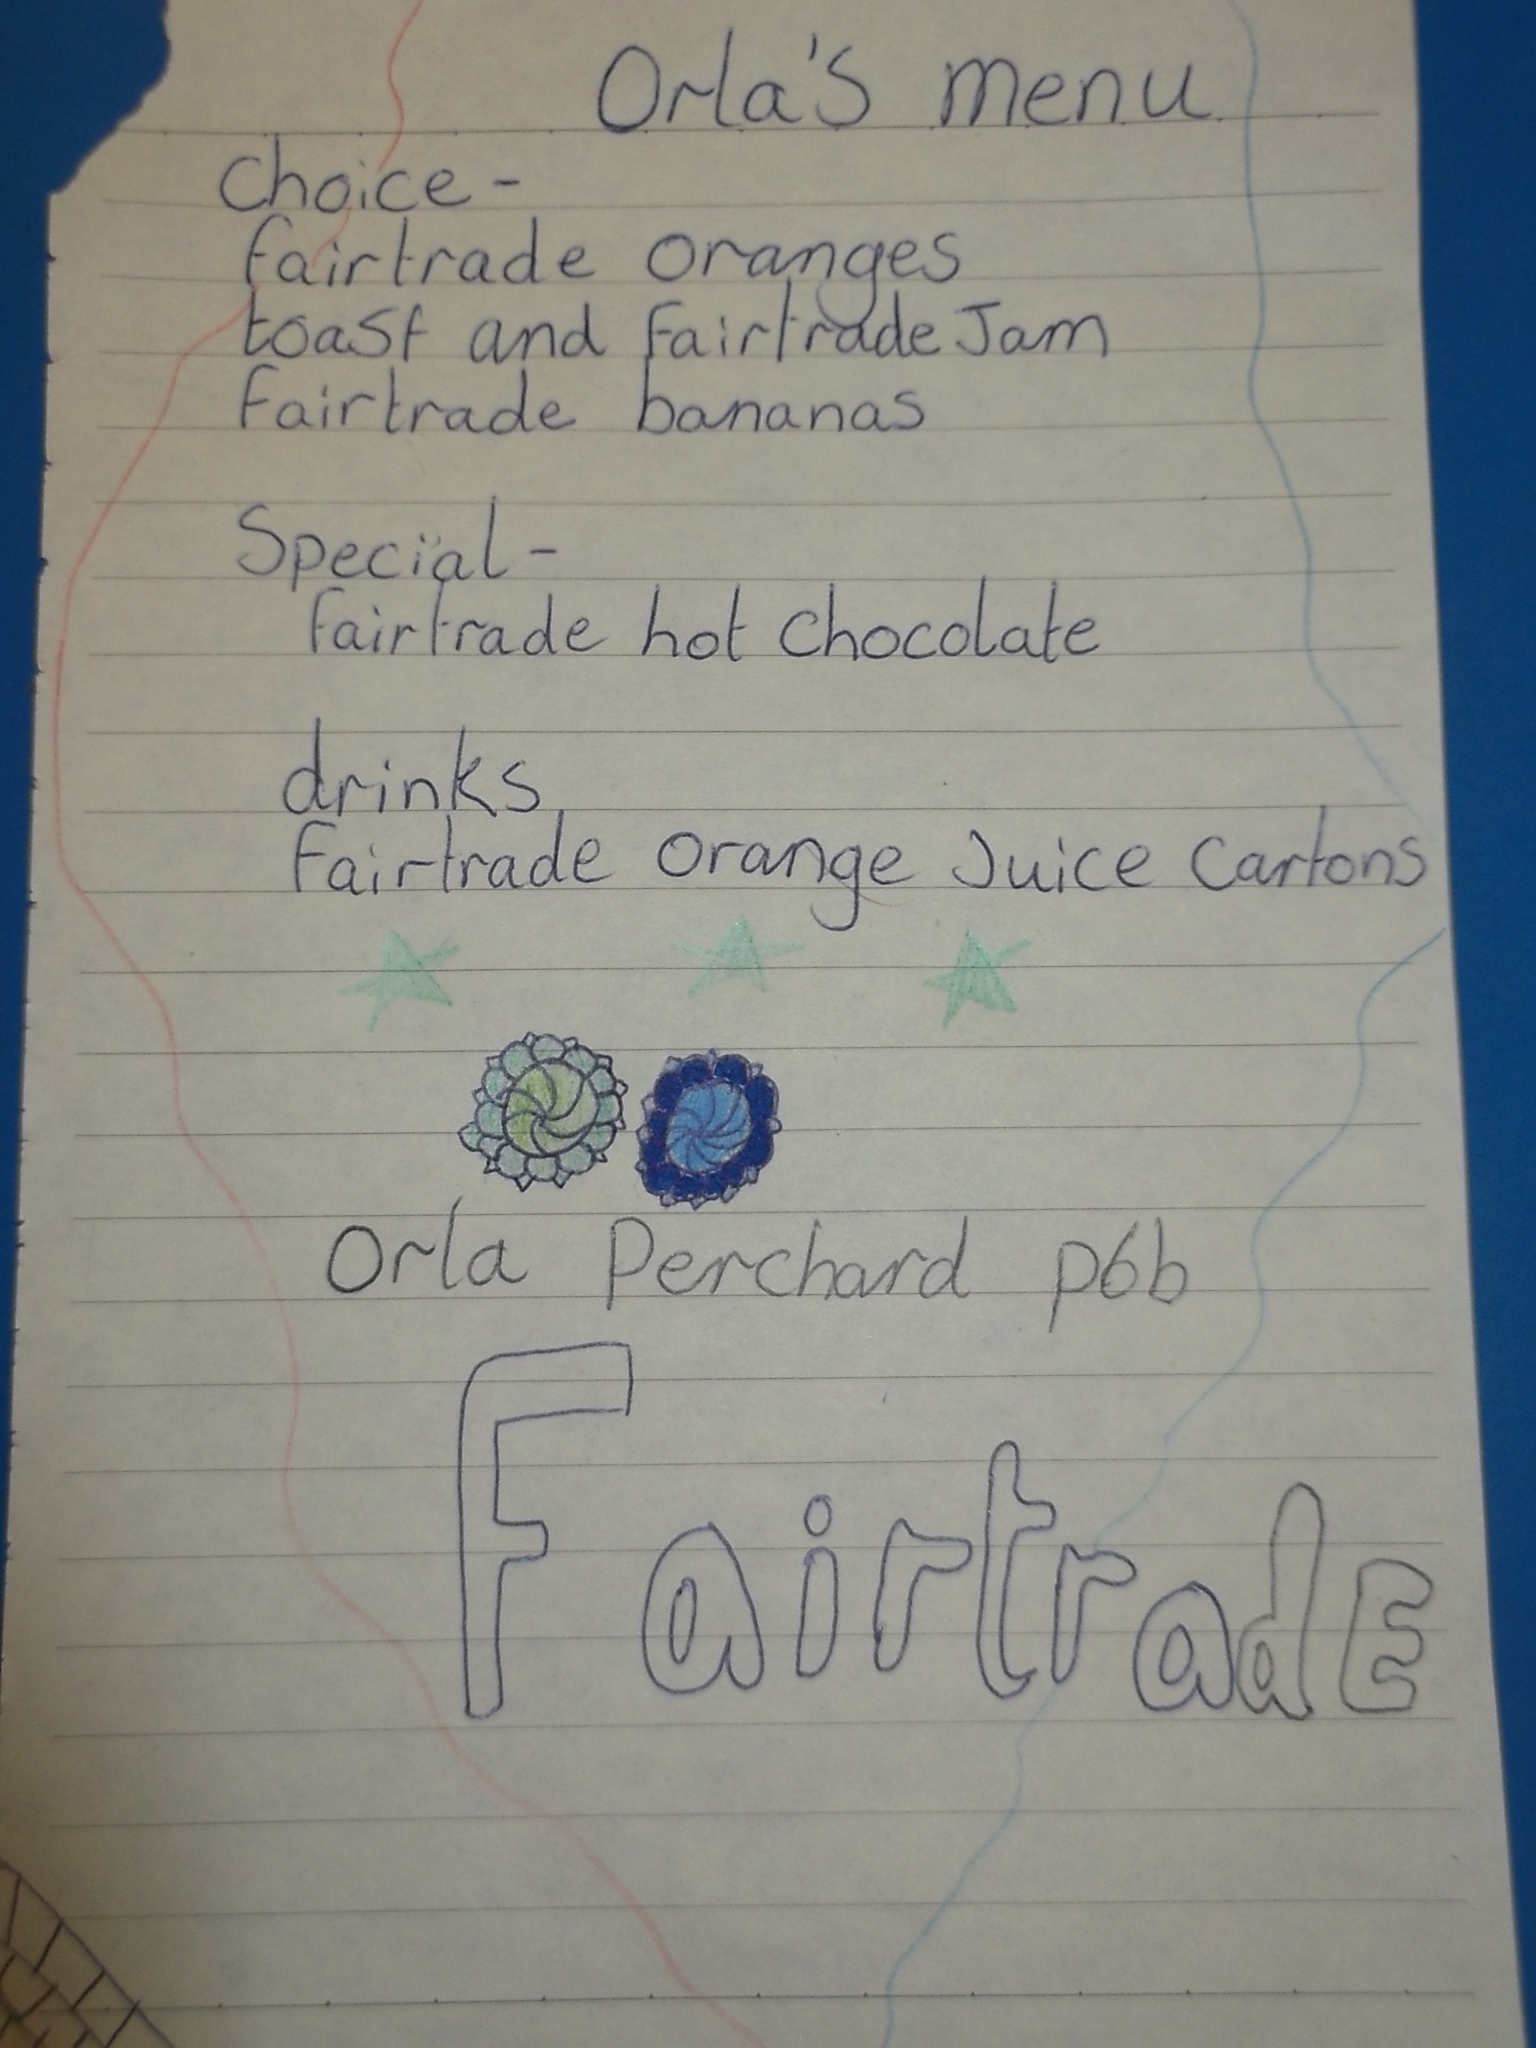 Orla's menu
Choice -
fairtrade oranges
toast and fairtrade Jam
Fairtrade bananas
Special -
fairtrade hot chocolate
drinks
Fairtrade orange Juice Cartons
Orla Perchard p6b
FairtradE